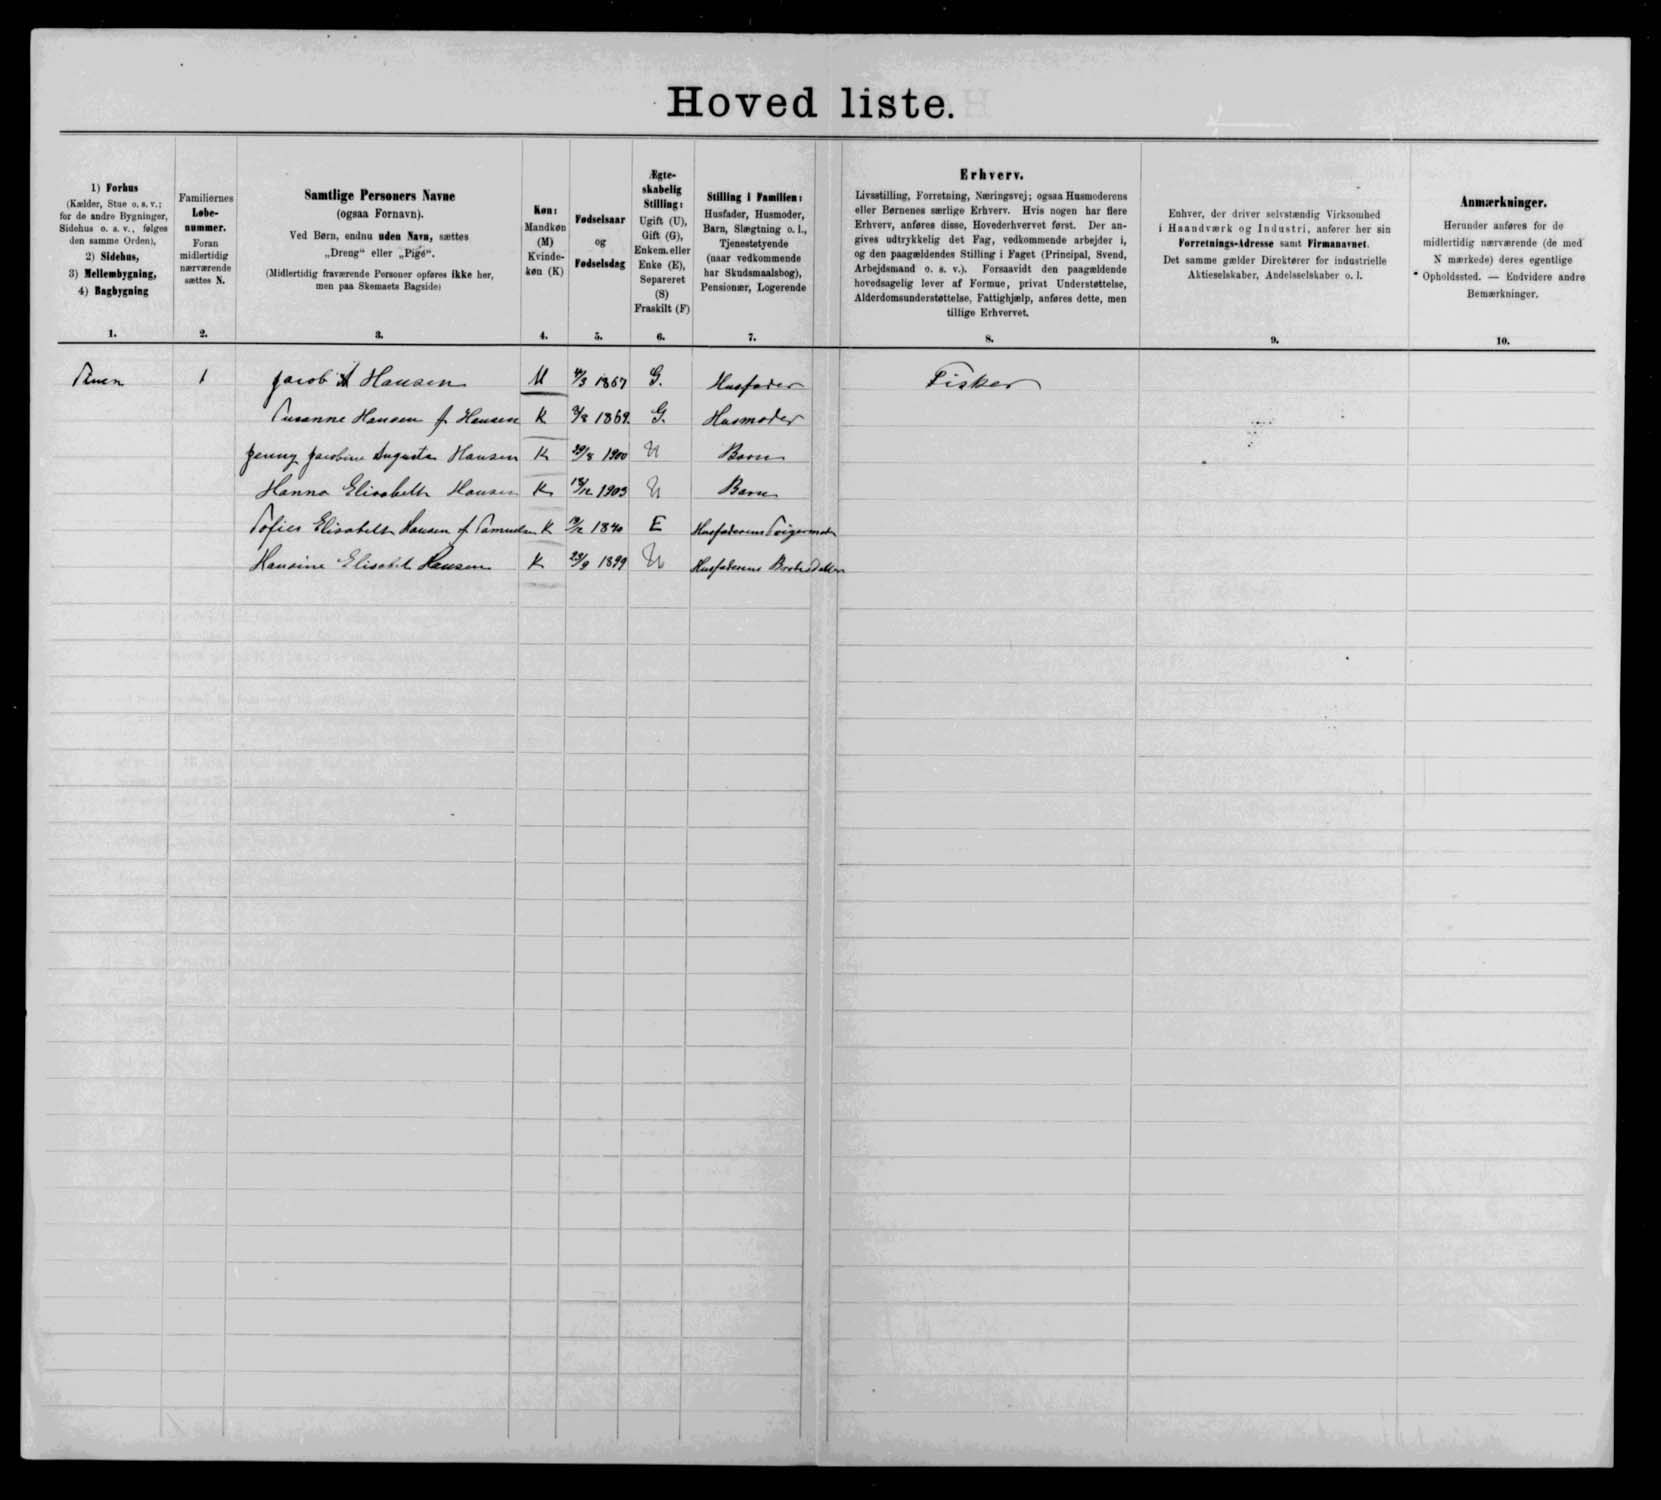 Hoved liste.
1) Forhus
(Kælder, Stue o. s. v.;
for de andre Bygninger,
Sidehus o. s. v., følges
den samme Orden),
2) Sidehus,
3) Mellembygning,
4) Bagbygning
1.
Familiernes
Løbe-
nummer.
Foran
midlertidig
nærværende
sættes N.
2.
Samtlige Personers Navne
(ogsaa Fornavn).
Ved Børn, endnu uden Navn, sættes
„Dreng“ eller „Pige“.
(Midlertidig fraværende Personer opføres ikke her,
men paa Skemaets Bagside)
3.
Køn:
Mandkøn
(M)
Kvinde-
køn (K)
4.
Fødselsaar
og
Fødselsdag
5.
Ægte-
skabelig
Stilling:
Ugift (U),
Gift (G),
Enkem. eller
Enke (E),
Separeret
(S)
Fraskilt (F)
6.
Stilling i Familien:
Husfader, Husmoder,
Barn, Slægtning o. l.,
Tjenestetyende
(naar vedkommende
har Skudsmaalsbog),
Pensionær, Logerende
7.
Erhverv.
Livsstilling, Forretning, Næringsvej; ogsaa Husmoderens
eller Børnenes særlige Erhverv. Hvis nogen har flere
Erhverv, anføres disse, Hovederhvervet først. Der an-
gives udtrykkelig det Fag, vedkommende arbejder i,
og den paagældendes Stilling i Faget (Principal, Svend,
Arbejdsmand o. s. v.). Forsaavidt den paagældende
hovedsagelig lever af Formue, privat Understøttelse,
Alderdomsunderstøttelse, Fattighjælp, anføres dette, men
tillige Erhvervet.
8.
Enhver, der driver selvstændig Virksomhed
i Haandværk og Industri, anfører her sin
Forretnings-Adresse samt Firmanavnet.
Det samme gælder Direktører for industrielle
Aktieselskaber, Andelsselskaber o. l.
9.
Anmærkninger.
Herunder anføres for de
midlertidig nærværende (de med
N mærkede) deres egentlige
Opholdssted. — Endvidere andre
Bemærkninger.
10.
1 Jacob A Hansen M 4/3 1867 G. Husfader Fisker
Susanne Hansen f. Hansen K 3/8 1869. G. Husmoder
Jenny Jacobine Augusta Hansen K 29/8 1900 U Barn
Hanna Elisabeth Hansen K 18/12 1903 U Barn
Sofies Elisabeth Hansen f. K 1840 E Husfaderens Svigermoder
Hansine Elisabet Hansen K 23/9 1899 U Husfaderens Broderdatter